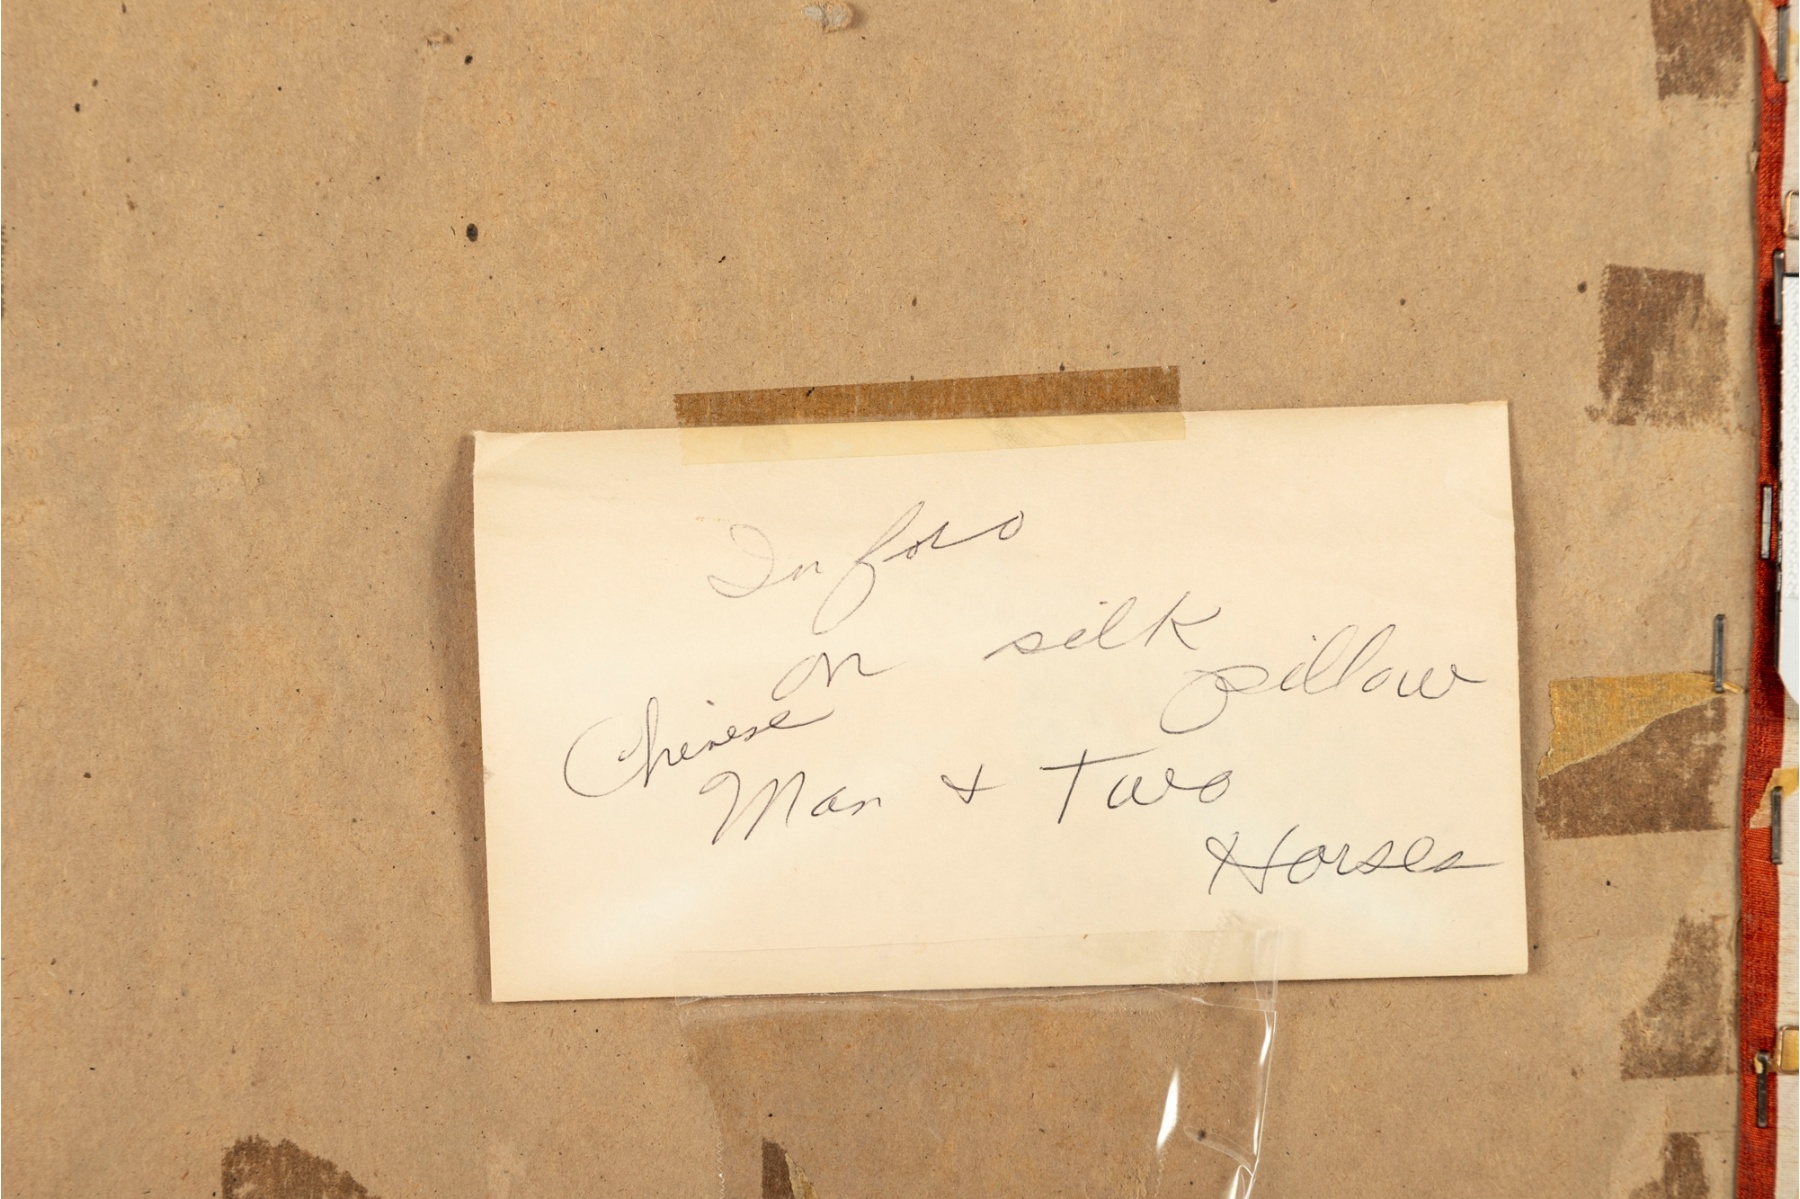 Info
on silk pillow
Chinese
Man + Two
Horses